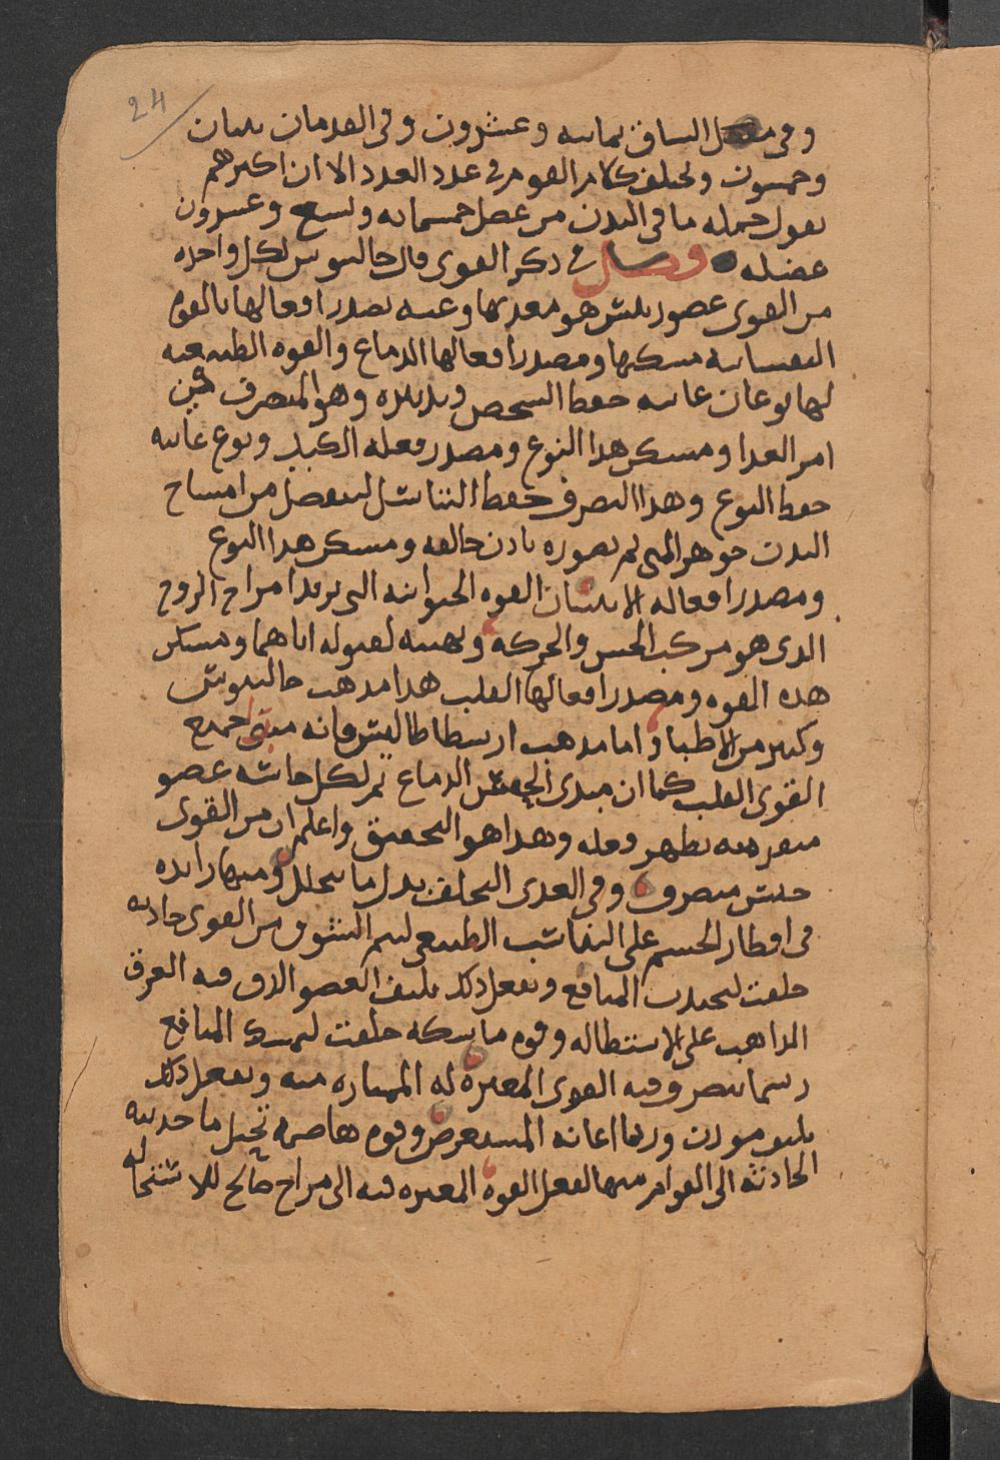 24
وفى مفصل الساق ثمانيه وعشرون وفى القدمان ثنتان
وخمسون ويختلف كلام القوم فى عدد العدد الا ان اكثرهم
يقول جمله ما فى البدن من عضل خمسمائه وتسع وعشرون
عضله فصل فى ذكر القوى قال جالينوس لكل واحده
من القوى عضو رئيس هو معدنها وعنه تصدر افعالها فالقوه
النفسانيه مسكنها ومصدر افعالها الدماغ والقوه الطبيعيه
لها نوعان غايته حفظ الشخص وتدبيره وهو المتصرف فى
امر الغدا ومسكن هذا النوع ومصدر فعله الكبد ونوع غايته
حفظ النوع وهذا التصرف حفظ التناسل ليفصل من امساج
البدن جوهر المنى ثم يصوره باذن خالقه ومسكن هذا النوع
ومصدر افعاله الانثيان القوه الحيوانيه التى تدبر امر الروح
الذى هو مركب الحس والحركه وتهييه لقبوله اياهما ومسكن
هذه القوه ومصدر افعالها القلب هذا مذهب جالينوس
وكثير من الاطباء واما مذهب ارسطاطاليس فانه مبنى جميع
القوى القلب كما ان مبدى الحس الدماغ ثم لكل حاسه عضو
مفرد منه يظهر فعله وهذا هو التحقيق واعلم ان من القوى
جنس متصرف وفى الغدى التخلف بدل ما يتحلل ومنها زائده
فى اقطار الجسم على التناسب الطبيعى ليتم النشو من القوى جاذبه
خلقت لتجذب المنافع ويفعل ذلك بليف العضو الذى فيه العرق
الذاهب على الاستطاله وقوه ماسكه خلقت لتمسك المنافع
ريثما تتصرف فيه القوى المغيره له الممتاره منه ويفعل ذلك
بليف مورب وربما اعانه المستعرض وقوه هاضمه تحيل ما جذبته
الجاذبه الى القوام مهيا لفعل القوه المغيره فيه الى مزاج صالح للاستحاله